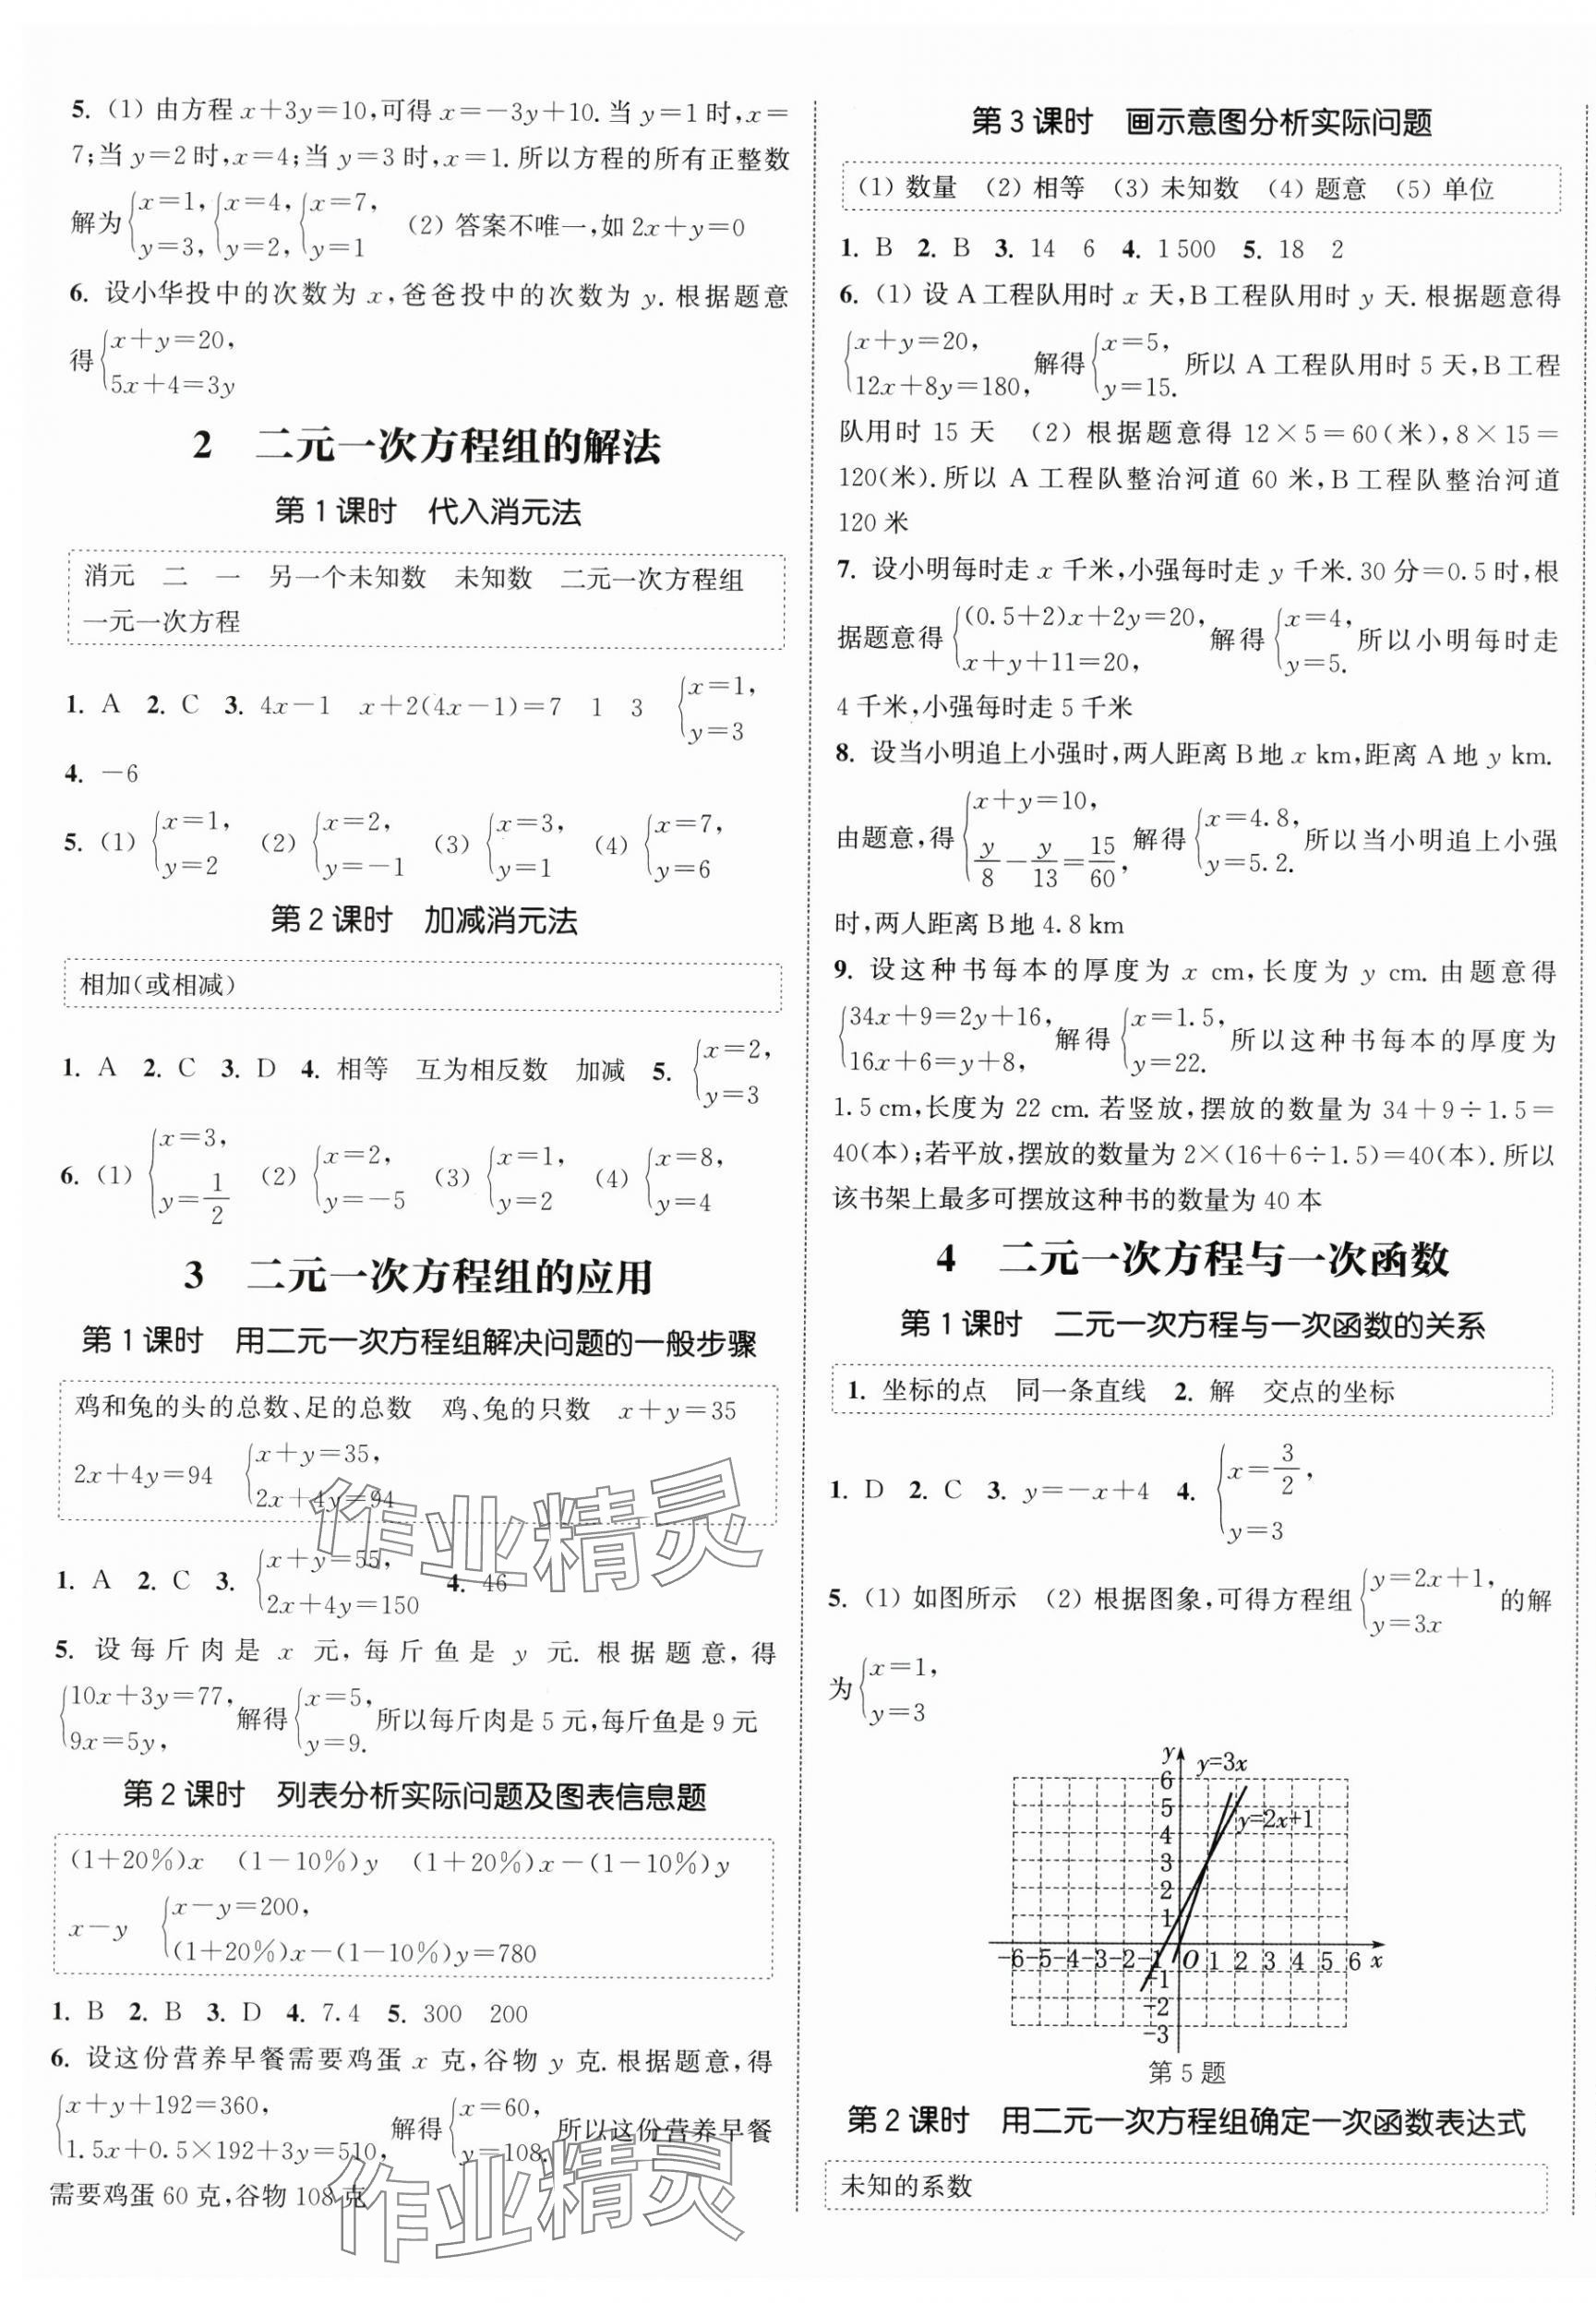 5. (1) 由方程 x+3y=10,可得 x=-3y+10. 当 y=1 时,x=
7;当 y=2 时,x=4;当 y=3 时,x=1. 所以方程的所有正整数
解为{x=1, y=3, {x=4, y=2, {x=7, y=1 (2) 答案不唯一,如 2x+y=0
6. 设小华投中的次数为 x,爸爸投中的次数为 y. 根据题意
得{x+y=20, 5x+4=3y
2 二元一次方程组的解法
第 1 课时 代入消元法
消元 二 一 另一个未知数 未知数 二元一次方程组
一元一次方程
1. A 2. C 3. 4x-1 x+2(4x-1)=7 1 3 {x=1, y=3
4. -6
5. (1) {x=1, y=2 (2) {x=2, y=-1 (3) {x=3, y=1 (4) {x=7, y=6
第 2 课时 加减消元法
相加(或相减)
1. A 2. C 3. D 4. 相等 互为相反数 加减 5. {x=2, y=3
6. (1) {x=3, y=1/2 (2) {x=2, y=-5 (3) {x=1, y=2 (4) {x=8, y=4
3 二元一次方程组的应用
第 1 课时 用二元一次方程组解决问题的一般步骤
鸡和兔的头的总数、足的总数 鸡、兔的只数 x+y=35
2x+4y=94 {x+y=35, 2x+4y=94
1. A 2. C 3. {x+y=55, 2x+4y=150 4. 46
5. 设每斤肉是 x 元,每斤鱼是 y 元. 根据题意,得
{10x+3y=77, 9x=5y, 解得{x=5, y=9. 所以每斤肉是 5 元,每斤鱼是 9 元
第 2 课时 列表分析实际问题及图表信息题
(1+20%)x (1-10%)y (1+20%)x-(1-10%)y
x-y {x-y=200, (1+20%)x-(1-10%)y=780
1. B 2. B 3. D 4. 7.4 5. 300 200
6. 设这份营养早餐需要鸡蛋 x 克,谷物 y 克. 根据题意,得
{x+y+192=360, 1.5x+0.5×192+3y=510, 解得{x=60, y=108. 所以这份营养早餐
需要鸡蛋 60 克,谷物 108 克
第 3 课时 画示意图分析实际问题
(1) 数量 (2) 相等 (3) 未知数 (4) 题意 (5) 单位
1. B 2. B 3. 14 6 4. 1 500 5. 18 2
6. (1) 设 A 工程队用时 x 天,B 工程队用时 y 天. 根据题意得
{x+y=20, 12x+8y=180, 解得{x=5, y=15. 所以 A 工程队用时 5 天,B 工程
队用时 15 天 (2) 根据题意得 12×5=60(米),8×15=
120(米). 所以 A 工程队整治河道 60 米,B 工程队整治河道
120 米
7. 设小明每时走 x 千米,小强每时走 y 千米. 30 分=0.5 时,根
据题意得{(0.5+2)x+2y=20, x+y+11=20, 解得{x=4, y=5. 所以小明每时走
4 千米,小强每时走 5 千米
8. 设当小明追上小强时,两人距离 B 地 x km,距离 A 地 y km.
由题意,得{x+y=10, y/8-y/13=15/60, 解得{x=4.8, y=5.2. 所以当小明追上小强
时,两人距离 B 地 4.8 km
9. 设这种书每本的厚度为 x cm,长度为 y cm. 由题意得
{34x+9=2y+16, 16x+6=y+8, 解得{x=1.5, y=22. 所以这种书每本的厚度为
1.5 cm,长度为 22 cm. 若竖放,摆放的数量为 34+9÷1.5=
40(本);若平放,摆放的数量为 2×(16+6÷1.5)=40(本). 所以
该书架上最多可摆放这种书的数量为 40 本
4 二元一次方程与一次函数
第 1 课时 二元一次方程与一次函数的关系
1. 坐标的点 同一条直线 2. 解 交点的坐标
1. D 2. C 3. y=-x+4 4. {x=3/2, y=3
5. (1) 如图所示 (2) 根据图象,可得方程组{y=2x+1, y=3x 的解
为{x=1, y=3
y
y=3x
6
5
y=2x+1
4
3
2
1
-6-5-4-3-2-1 O 1 2 3 4 5 6 x
-1
-2
-3
第 5 题
第 2 课时 用二元一次方程组确定一次函数表达式
未知的系数
作业精灵
作业精灵